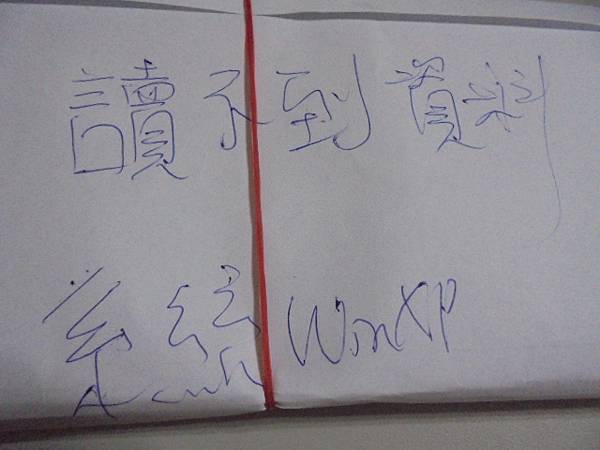 讀不到資料
系統WinXP